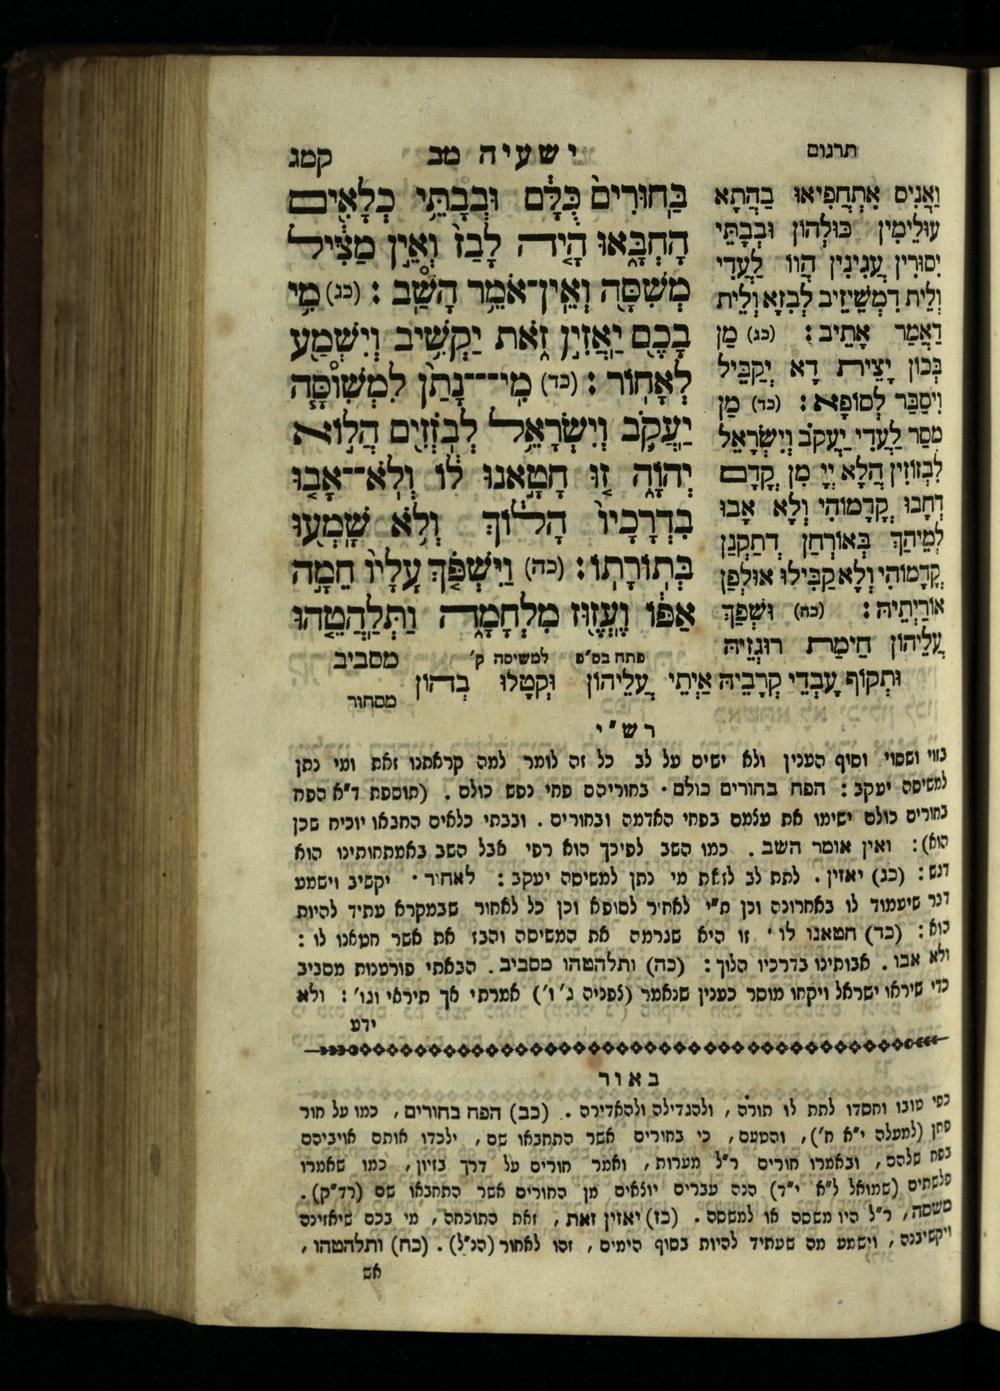 תרגום
ישעיה מב
קמג
בַּחוּרִים֙ כֻּלָּ֔ם וּבְבָתֵּ֥י כְלָאִ֖ים
הָחְבָּ֑אוּ הָ֤יוּ לָבַז֙ וְאֵ֣ין מַצִּ֔יל
מְשִׁסָּ֖ה וְאֵֽין־אֹמֵ֥ר הָשַֽׁב׃ (כג) מִ֥י
בָכֶ֖ם יַאֲזִ֣ין זֹ֑את יַקְשִׁ֥יב וְיִשְׁמַ֖ע
לְאָחֽוֹר׃ (כד) מִֽי־נָתַ֨ן לִמְשִׁוסָּ֧ה
יַעֲקֹ֛ב וְיִשְׂרָאֵ֥ל לְבֹזְזִ֖ים הֲל֣וֹא
יְהוָ֑ה ז֚וּ חָטָ֣אנוּ ל֔וֹ וְלֹֽא־אָב֤וּ
בִדְרָכָיו֙ הָל֔וֹךְ וְלֹ֥א שָׁמְע֖וּ
בְּתוֹרָתֽוֹ׃ (כה) וַיִּשְׁפֹּ֤ךְ עָלָיו֙ חֵמָ֣ה
אַפּ֔וֹ וֶעֱז֖וּז מִלְחָמָ֑ה וַתְּלַהֲטֵ֤הוּ
פתח בס"פ למשיסה ק'
מסביב
וַאֲנִיס אִתְחֲפִיאוּ בַּהֲתָא
עוּלֵימִין כּוּלְהוֹן וּבְבָתֵּי
יִסוּרִין עֲנִינִין הֲווֹ לַעֲדֵי
וְלֵית דִּמְשֵׁיזִיב לְבִזָא וְלֵית
דַאֲמַר אָתֵיב׃ (כג) מַן
בְּכוֹן יָצֵית דָא יְקַבֵּיל
וִיסַבַּר לְסוֹפָא׃ (כד) מַן
מְסַר לַעֲדֵי יַעֲקֹב וְיִשְׂרָאֵל
לְבָזוֹזִין הֲלָא יְיָ מִן קֳדָם
דְחָבוּ קֳדָמוֹהִי וְלָא אָבוּ
לְמֵיהַךְ בְּאוֹרְחָן דְתַקְנָן
קֳדָמוֹהִי וְלָא קַבִּילוּ אוּלְפַן
אוֹרָיְתֵיהּ׃ (כה) וּשְׁפַךְ
עֲלֵיהוֹן חֵימַת רוּגְזֵיהּ
וּתְקוֹף עָבְדֵי קְרָבֵיהּ אַיְתִי עֲלֵיהוֹן וּקְטָלוּ בְהוֹן
מסחור
רש"י
בזוי ושסוי וסוף הענין ולא ישים על לב כל זה לומר למה קראתנו זאת ומי נתן
למשיסה יעקב : הפח בחורים כולם . בחוריהם פחי נפש כולם . (תוספת ד"א הפח
בחורים כולם ישימו את עצמם בפחי האדמה ובחורים . ובבתי כלאים החבאו יוכיח שכן
הוא) : ואין אומר השב . כמו השב לפיכך הוא רפי אבל השב באמתחותינו הוא
דגש : (כג) יאזין . לתת לב לזאת מי נתן למשיסה יעקב : לאחור . יקשיב וישמע
דבר שיעמוד לו באחרונה וכן ת"י לאחור לסופא וכן כל לאחור שבמקרא עתיד להיות
הוא : (כד) חטאנו לו . זו היא שגרמה את המשיסה והבז את אשר חטאנו לו :
ולא אבו . אבותינו בדרכיו הלוך : (כה) ותלהטהו מסביב . הבאתי פורענות מסביב
כדי שיראו ישראל ויקחו מוסר כענין שנאמר (צפניה ג' ו') אמרתי אך תיראי וגו' : ולא
ידע
באור
כפי טובו וחסדו לתת לו תורה , ולהגדילה ולהאדירה . (כב) הפח בחורים , כמו על חור
פתן (למעלה י"א ח') , והטעם , כי בחורים אשר התחבאו שם , ילכדו אותם אויביהם
בפח שלהם , ובאמרו חורים ר"ל מערות , ואמר חורים על דרך בזיון , כמו שאמרו
פלשתים (שמואל א' י"ד) הנה עברים יוצאים מן החורים אשר התחבאו שם (רד"ק) .
משסה , ר"ל היו משסה או למשסה . (כז) יאזין זאת , זאת התוכחה , מי בכם שיאזינה
ויקשיבנה , וישמע מה שעתיד להיות בסוף הימים , זהו לאחור (הנ"ל) . (כח) ותלהטהו ,
אש